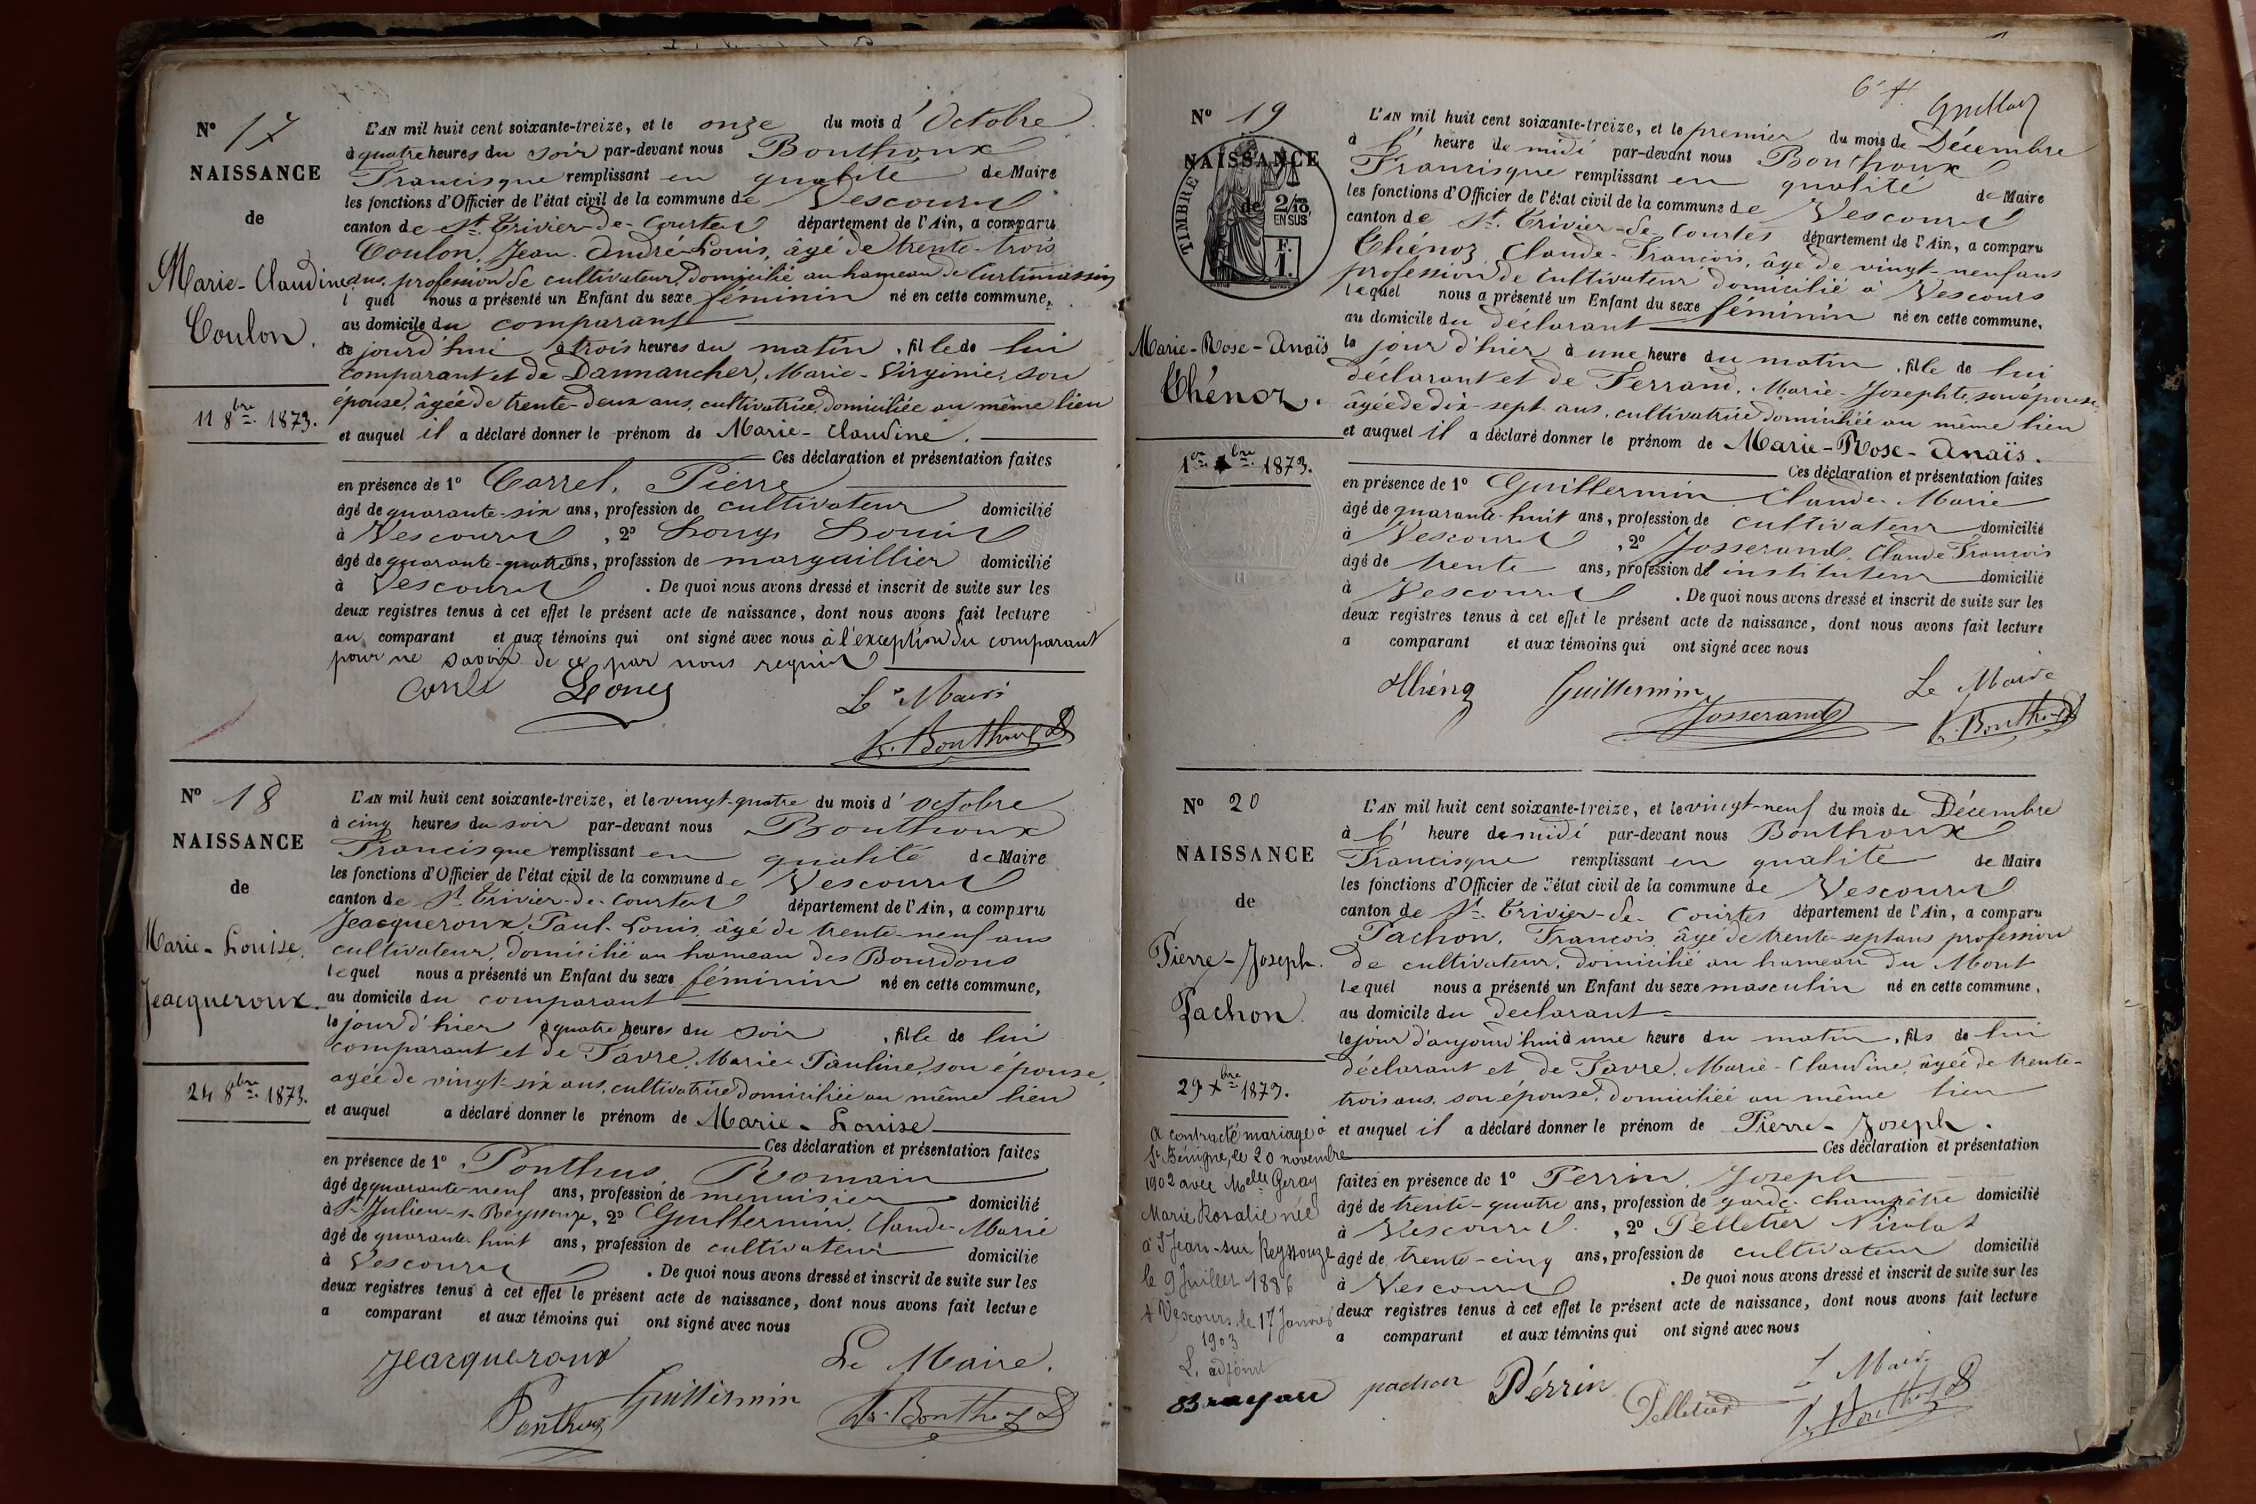 N° 17
NAISSANCE
de
Marie-Claudine
Coulon.
11 8bre 1873.
L'AN mil huit cent soixante-treize, et le onze du mois d'Octobre
à quatre heures du soir par-devant nous Bouthoux
Francisque remplissant en qualité de Maire
les fonctions d'Officier de l'état civil de la commune de Vescours
canton de St Trivier-de-Courtes département de l'Ain, a comparu
Coulon, Jean-André-Louis, âgé de trente-trois
ans, profession de cultivateur, domicilié au hameau de
l quel nous a présenté un Enfant du sexe féminin né en cette commune,
au domicile du comparant
le jourd'hui à trois heures du matin, fille de lui
comparant et de Dannancher, Marie-Virginie, son
épouse, âgée de trente-deux ans, cultivatrice, domiciliée au même lieu
et auquel il a déclaré donner le prénom de Marie-Claudine.
Ces déclaration et présentation faites
en présence de 1° Carrel, Pierre
âgé de quarante-six ans, profession de cultivateur domicilié
à Vescours, 2° Longs Louis
âgé de quarante-quatre ans, profession de marguillier domicilié
à Vescours. De quoi nous avons dressé et inscrit de suite sur les
deux registres tenus à cet effet le présent acte de naissance, dont nous avons fait lecture
au comparant et aux témoins qui ont signé avec nous à l'exception du comparant
pour ne savoir de ce par nous requis
Le Maire
Fr. Bouthoux
N° 18
NAISSANCE
de
Marie-Louise
Jeacqueroux.
24 8bre 1873.
L'AN mil huit cent soixante-treize, et le vingt-quatre du mois d'octobre
à cinq heures du soir par-devant nous Bouthoux
Francisque remplissant en qualité de Maire
les fonctions d'Officier de l'état civil de la commune de Vescours
canton de St Trivier-de-Courtes département de l'Ain, a comparu
Jeacqueroux, Paul-Louis, âgé de trente-neuf ans
cultivateur, domicilié au hameau des Bourdons
lequel nous a présenté un Enfant du sexe féminin né en cette commune,
au domicile du comparant
le jour d'hier à quatre heures du soir, fille de lui
comparant et de Favre, Marie-Pauline, son épouse,
agée de vingt-six ans, cultivatrice domiciliée au même lieu
et auquel a déclaré donner le prénom de Marie-Louise
Ces déclaration et présentation faites
en présence de 1° Ponthus, Romain
âgé de quarante-neuf ans, profession de menuisier domicilié
à St Julien-s-Reyssouze, 2° Guillermin, Claude-Marie
âgé de quarante-huit ans, profession de cultivateur domicilié
à Vescours. De quoi nous avons dressé et inscrit de suite sur les
deux registres tenus à cet effet le présent acte de naissance, dont nous avons fait lecture
a comparant et aux témoins qui ont signé avec nous
Jeacqueroux
Ponthus
Guillermin
Le Maire.
Fr. Bouthoux
6e f.
N° 19
NAISSANCE
de
TIMBRE
2/10
EN SUS
F.
1.
Marie-Rose-Anaïs
Chénoz.
1er Xbre 1873.
L'AN mil huit cent soixante-treize, et le premier du mois de Décembre
à l' heure de midi par-devant nous Bouthoux
Francisque remplissant en qualité de Maire
les fonctions d'Officier de l'état civil de la commune de Vescours
canton de St Trivier-de-Courtes département de l'Ain, a comparu
Chénoz, Claude-François, âgé de vingt-neuf ans
profession de cultivateur domicilié à Vescours
lequel nous a présenté un Enfant du sexe féminin né en cette commune,
au domicile du déclarant
le jour d'hier à une heure du matin, fille de lui
déclarant et de Ferrand, Marie-Josephte, son épouse,
âgée de dix-sept ans, cultivatrice domiciliée au même lieu
et auquel il a déclaré donner le prénom de Marie-Rose-Anaïs.
Ces déclaration et présentation faites
en présence de 1° Guillermin Claude-Marie
âgé de quarante-huit ans, profession de cultivateur domicilié
à Vescours, 2° Josserand, Claude François
âgé de trente ans, profession de instituteur domicilié
à Vescours. De quoi nous avons dressé et inscrit de suite sur les
deux registres tenus à cet effet le présent acte de naissance, dont nous avons fait lecture
a comparant et aux témoins qui ont signé avec nous
Chénoz
Guillermin
Josserand
Le Maire
Fr. Bouthoux
N° 20
NAISSANCE
de
Pierre-Joseph
Pachon.
29 Xbre 1873.
a contracté mariage à
St Bénigne, le 20 novembre
1902 avec Melle Geray
Marie Rosalie née
à St Jean-sur Reyssouze
le 9 Juillet 1886
à Vescours, le 17 Janvier
1903
L. adjoint
Brayard
L'AN mil huit cent soixante-treize, et le vingt-neuf du mois de Décembre
à l' heure de midi par-devant nous Bouthoux
Francisque remplissant en qualité de Maire
les fonctions d'Officier de l'état civil de la commune de Vescours
canton de St Trivier-de-Courtes département de l'Ain, a comparu
Pachon, François âgé de trente-sept ans profession
de cultivateur, domicilié au hameau du Mont
lequel nous a présenté un Enfant du sexe masculin né en cette commune,
au domicile du déclarant
le jour d'aujourd'hui à une heure du matin, fils de lui
déclarant et de Favre, Marie-Claudine, âgée de trente-
trois ans, son épouse, domiciliée au même lieu
et auquel il a déclaré donner le prénom de Pierre-Joseph.
Ces déclaration et présentation
faites en présence de 1° Perrin, Joseph
âgé de trente-quatre ans, profession de garde-champêtre domicilié
à Vescours, 2° Pelletier Nicolas
âgé de trente-cinq ans, profession de cultivateur domicilié
à Vescours. De quoi nous avons dressé et inscrit de suite sur les
deux registres tenus à cet effet le présent acte de naissance, dont nous avons fait lecture
a comparant et aux témoins qui ont signé avec nous
pachon
Pérrin
Pelletier
L Maire
Fr. Bouthoux